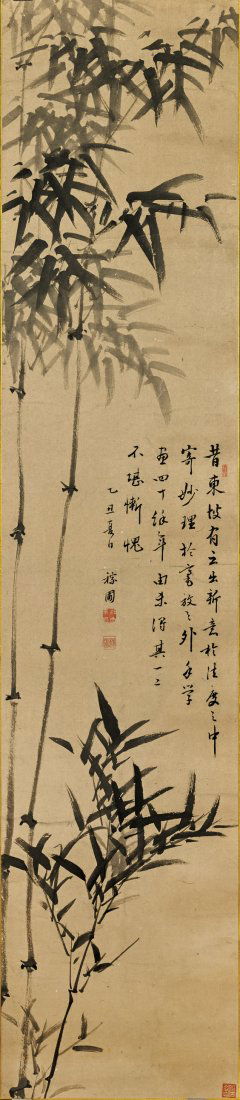 昔東坡有云出新意於法度之中
寄妙理於豪放之外予學
画四十餘年由未得其一二
不堪慚愧
乙丑夏日 稼圃